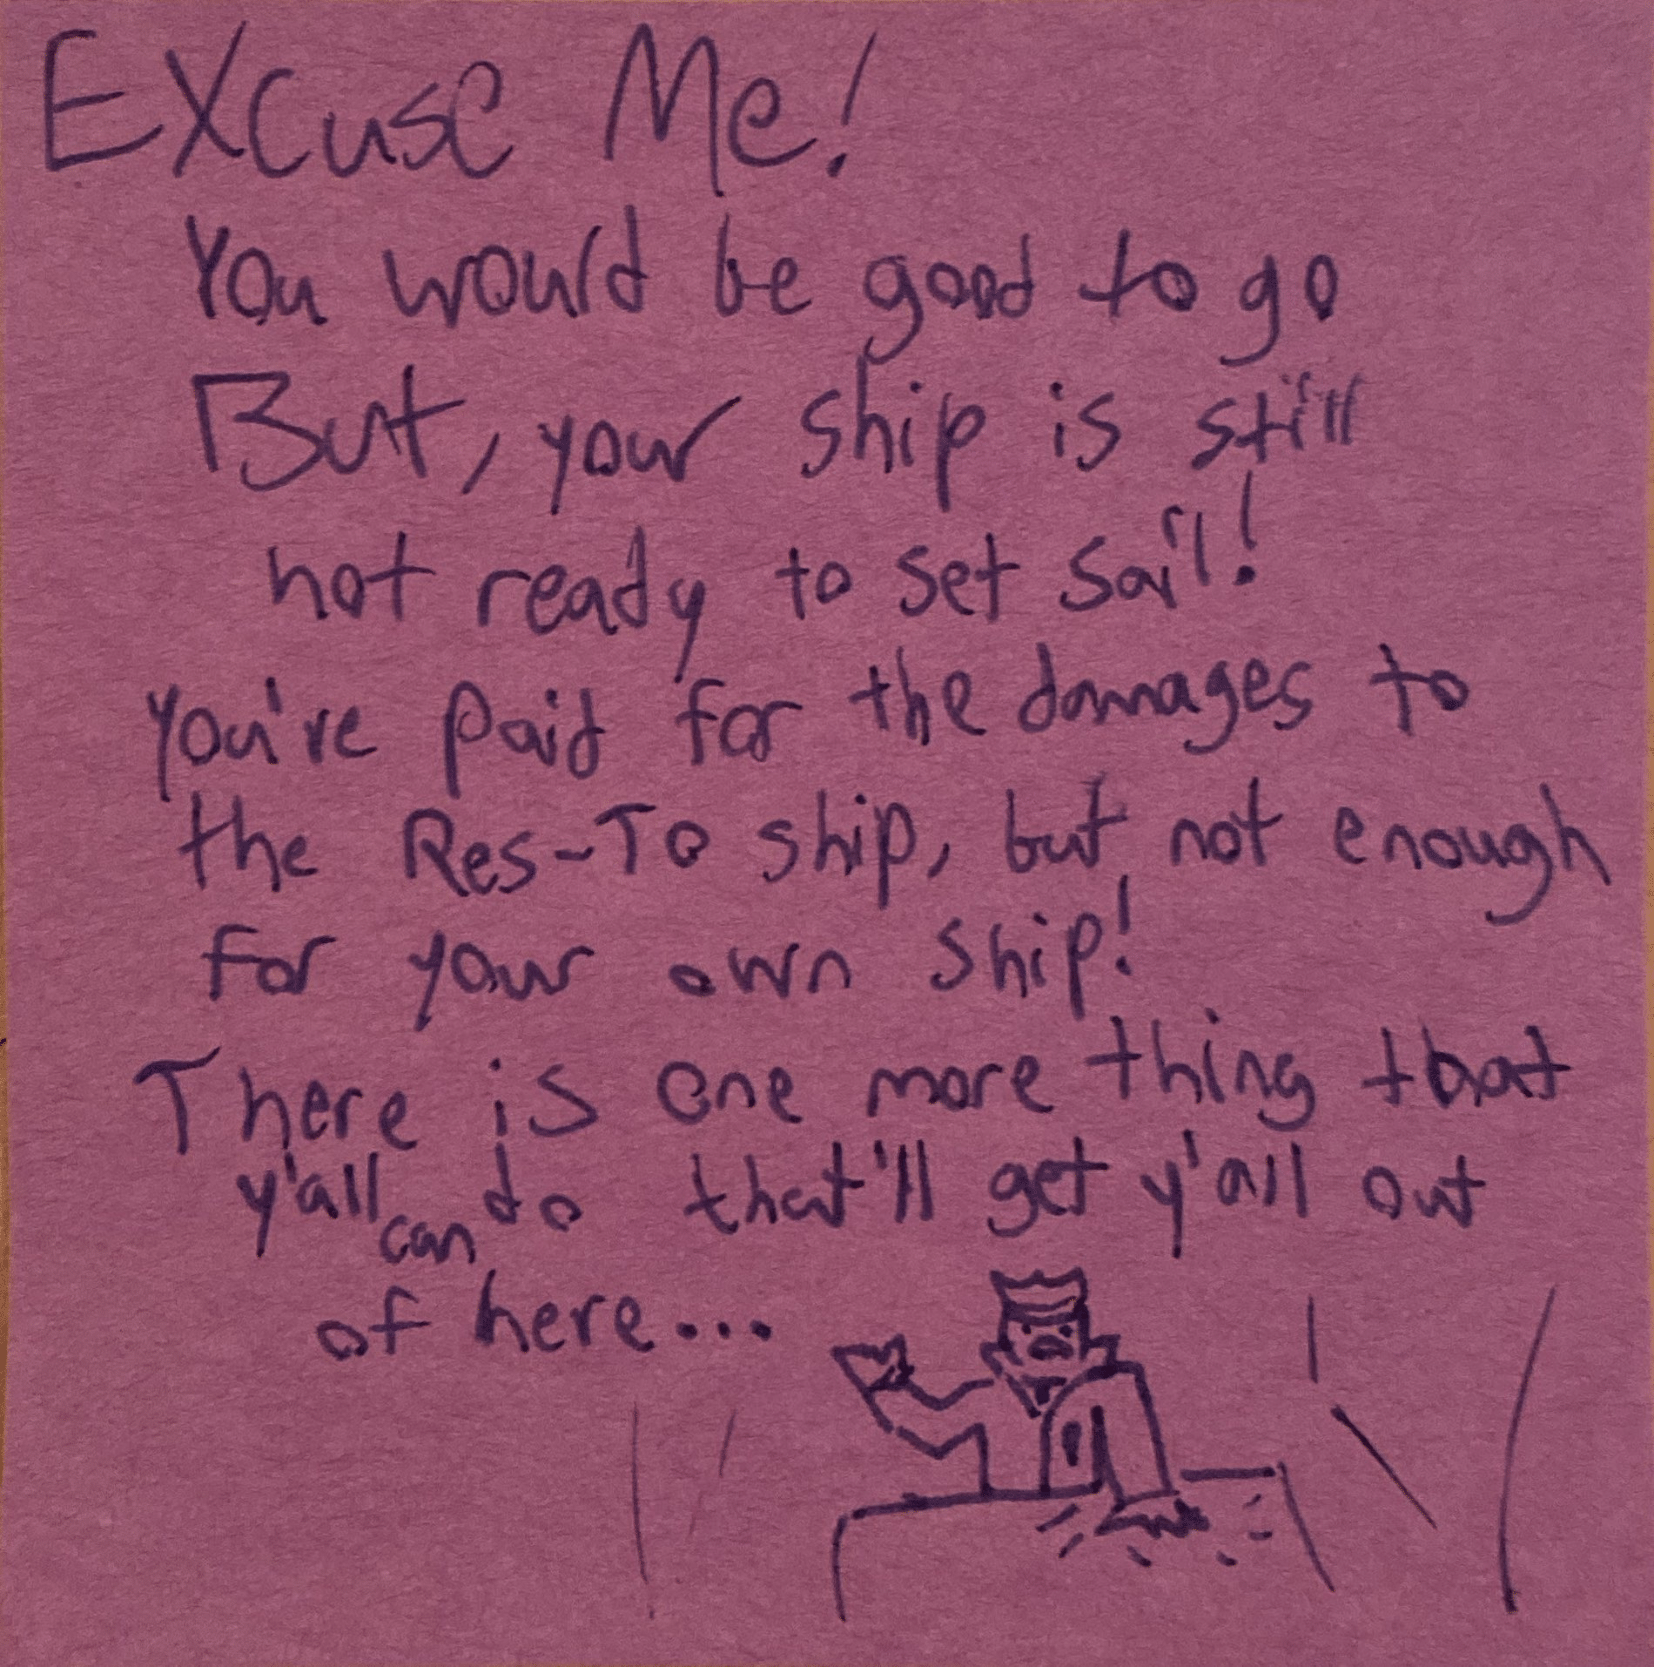 Excuse Me!
You would be good to go
But, your ship is still
not ready to set sail!
You've paid for the damages to
the Res-To ship, but not enough
for your own ship!
There is one more thing that
y'all can do that'll get y'all out
of here...